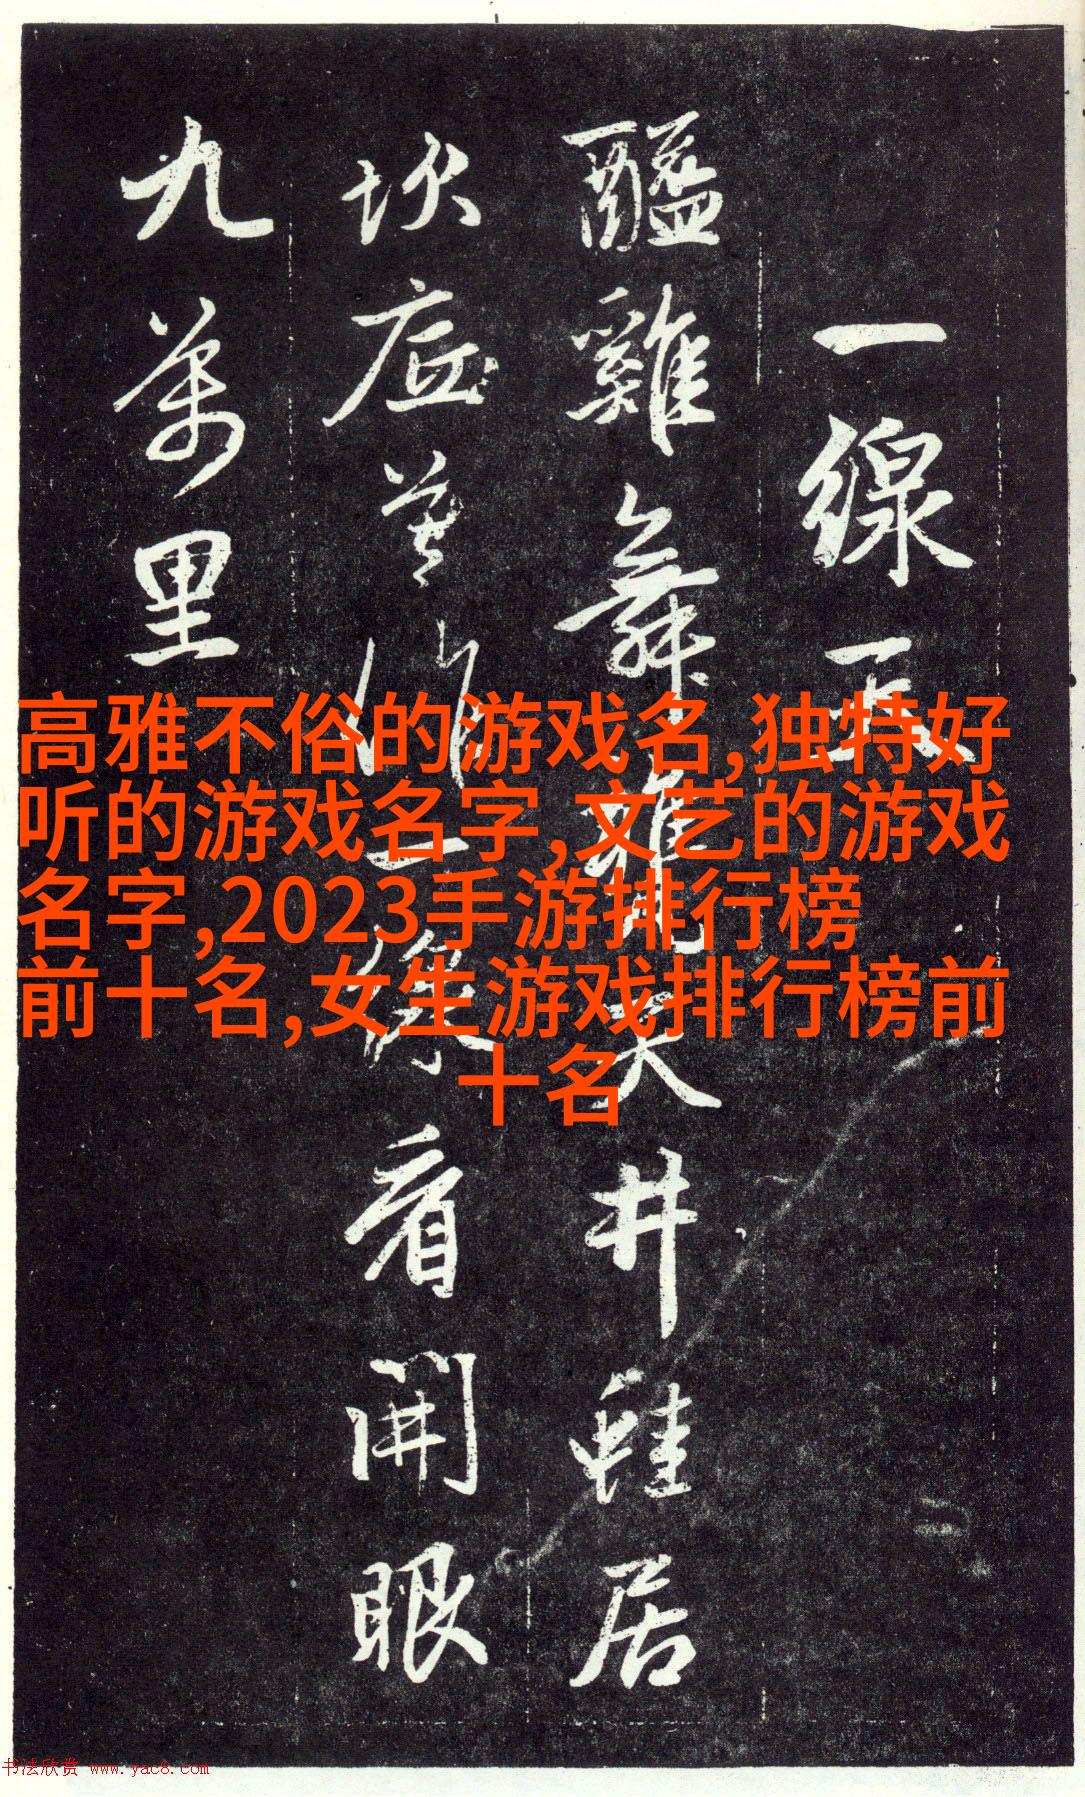 一線天
醯雞舞甕天井蛙居
坎底莫作一線看開眼
九萬里
高雅不俗的游戏名,独特好
听的游戏名字,文艺的游戏
名字,2023手游排行榜
前十名,女生游戏排行榜前
十名
书法欣赏 www.yac8.com